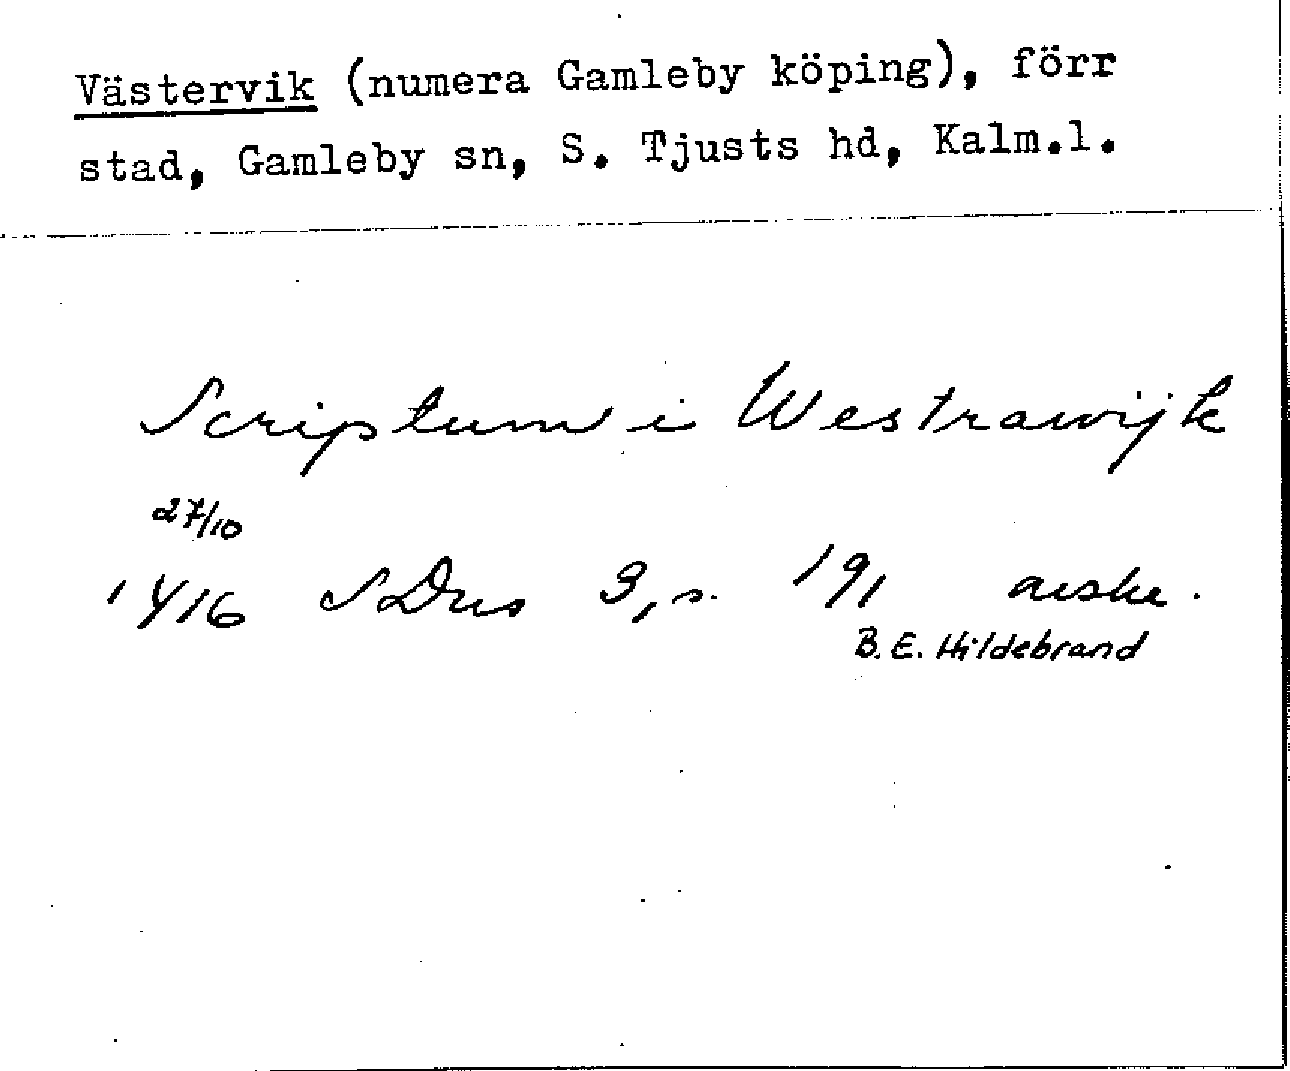 Västervik (numera Gamleby köping), förr
stad, Gamleby sn, S. Tjusts hd, Kalm.l.
Scriptum i Westrawijk
27/10
1416 SDns 3, s. 191 avskr.
B. E. Hildebrand